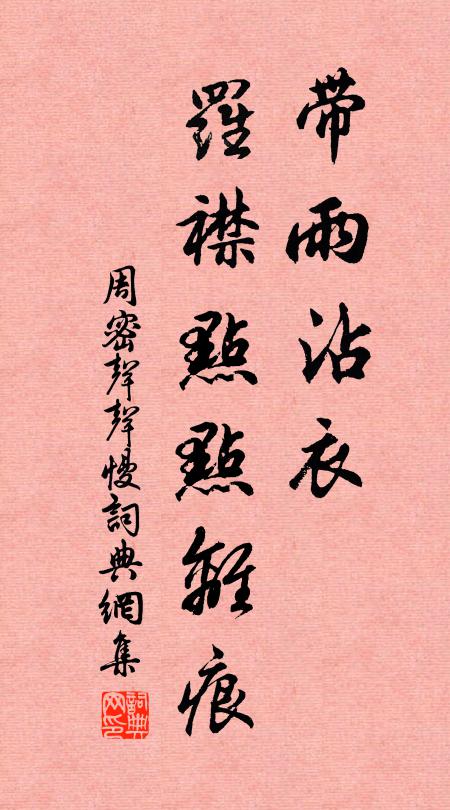 帶雨沾衣
羅襟點點離痕
周密聲聲慢詞典網集
詞典网印